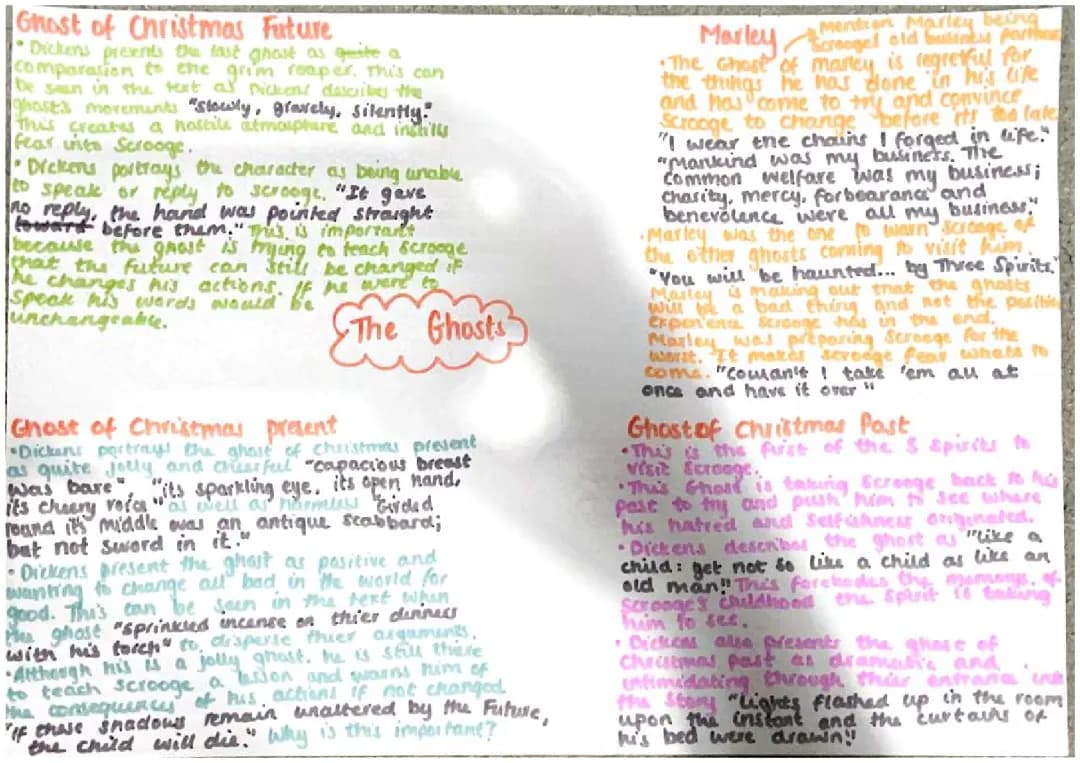 Ghost of Christmas Future
• Dickens presents the last ghost as quite a
comparasion to the grim reaper. This can
be seen in the text as Dickens describes the
ghost's movements "slowly, gravely, silently."
This creates a hostile atmosphere and instills
fear into Scrooge.
• Dickens portrays the character as being unable
to speak or reply to scrooge. "It gave
no reply, the hand was pointed straight
toward before them." This is important
because the ghost is trying to teach Scrooge
that the future can still be changed if
he changes his actions. If he were to
speak his words would be
unchangeable.
The Ghosts
Marley
mention Marley being
Scrooges old business partner
• The Ghost of marley is regretful for
the things he has done in his life
and has come to try and convince
Scrooge to change before its too late
"I wear the chains I forged in life."
"Mankind was my business. The
common welfare was my business;
charity, mercy, forbearance and
benevolence were all my business."
• Marley was the one to warn Scrooge of
the other ghosts coming to visit him.
"You will be haunted... by Three Spirits."
Marley is making out that the ghosts
will be a bad thing and not the positive
experience Scrooge has in the end.
Marley was preparing Scrooge for the
worst. It makes scrooge fear whats to
come. "Couldn't I take 'em all at
once and have it over"
Ghost of Christmas present
• Dickens portrays the ghost of christmas present
as quite jolly and cheerful "capacious breast
was bare", "its sparkling eye, its open hand,
its cheery voice" as well as harmless "Girded
round its middle was an antique scabbard;
but not sword in it."
• Dickens present the ghost as positive and
wanting to change all bad in the world for
good. This can be seen in the text when
the ghost "sprinkled incense on thier dinners
with his torch" to disperse thier arguments.
• Although his is a jolly ghost, he is still there
to teach scrooge a lesson and warns him of
the consequences of his actions if not changed
"if these shadows remain unaltered by the Future,
the child will die." Why is this important?
Ghost of Christmas Past
• This is the first of the 3 spirits to
visit Scrooge.
• This Ghost is taking Scrooge back to his
past to try and push him to see where
his hatred and selfishness originated.
• Dickens describes the ghost as "like a
child: yet not so like a child as like an
old man!" This forebodes the memorys of
Scrooge's childhood the spirit is taking
him to see.
• Dickens also presents the ghost of
Christmas past as dramatic and
intimidating through thier entrance into
the story "Lights flashed up in the room
upon the instant and the curtains of
his bed were drawn!"